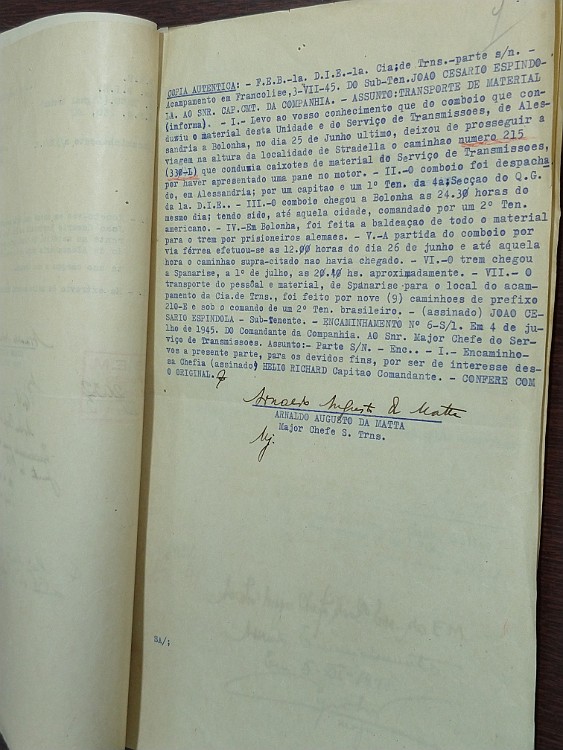 COPIA AUTENTICA: - F.E.B.-1a. D.I.E.-1a. Cia;de Trns.-parte s/n. -
Acampamento em Francolise,3-VII-45. DO Sub-Ten.JOAO CESARIO ESPINDO-
LA. AO SNR. CAP.CMT. DA COMPANHIA. - ASSUNTO:TRANSPORTE DE MATERIAL
(informa). - I.- Levo ao vosso conhecimento que do comboio que con-
duziu o material desta Unidade e do Serviço de Transmissoes, de Ales-
sandria a Bolonha, no dia 25 de Junho ultimo, deixou de prosseguir a
viagem na altura da localidade de Stradella o caminhao numero 215
(330-L) que conduzia caixotes de material do Serviço de Transmissoes,
por haver apresentado uma pane no motor. - II.-O comboio foi despacha
do, em Alessandria; por um capitao e um 1º Ten. da 4a;Secçao do Q.G.
da 1a. D.I.E.. - III.-O comboio chegou a Bolonha as 24.30 horas do
mesmo dia; tendo sido, até aquela cidade, comandado por um 2º Ten.
americano. - IV.-Em Bolonha, foi feita a baldeaçao de todo o material
para o trem por prisioneiros alemaes. - V.-A partida do comboio por
via férrea efetuou-se as 12.00 horas do dia 26 de junho e até aquela
hora o caminhao supra-citado nao havia chegado. - VI.-O trem chegou
a Spanarise, a 1º de julho, as 20.40 hs. aproximadamente. - VII.- O
transporte do pessoal e material, de Spanarise para o local do acam-
pamento da Cia.de Trns., foi feito por nove (9) caminhoes de prefixo
210-E e sob o comando de um 2º Ten. brasileiro. - (assinado) JOAO CE-
SARIO ESPINDOLA - Sub-Tenente. - ENCAMINHAMENTO Nº 6-S/1. Em 4 de ju-
lho de 1945. DO Comandante da Companhia. AO Snr. Major Chefe do Ser-
viço de Transmissoes. Assunto:- Parte S/N. - Enc.. - I.- Encaminho-
vos a presente parte, para os devidos fins, por ser de interesse des-
sa Chefia (assinado) HELIO RICHARD Capitao Comandante. - CONFERE COM
O ORIGINAL.
Arnaldo Augusto da Matta
ARNALDO AUGUSTO DA MATTA
Major Chefe S. Trns.
BA/;